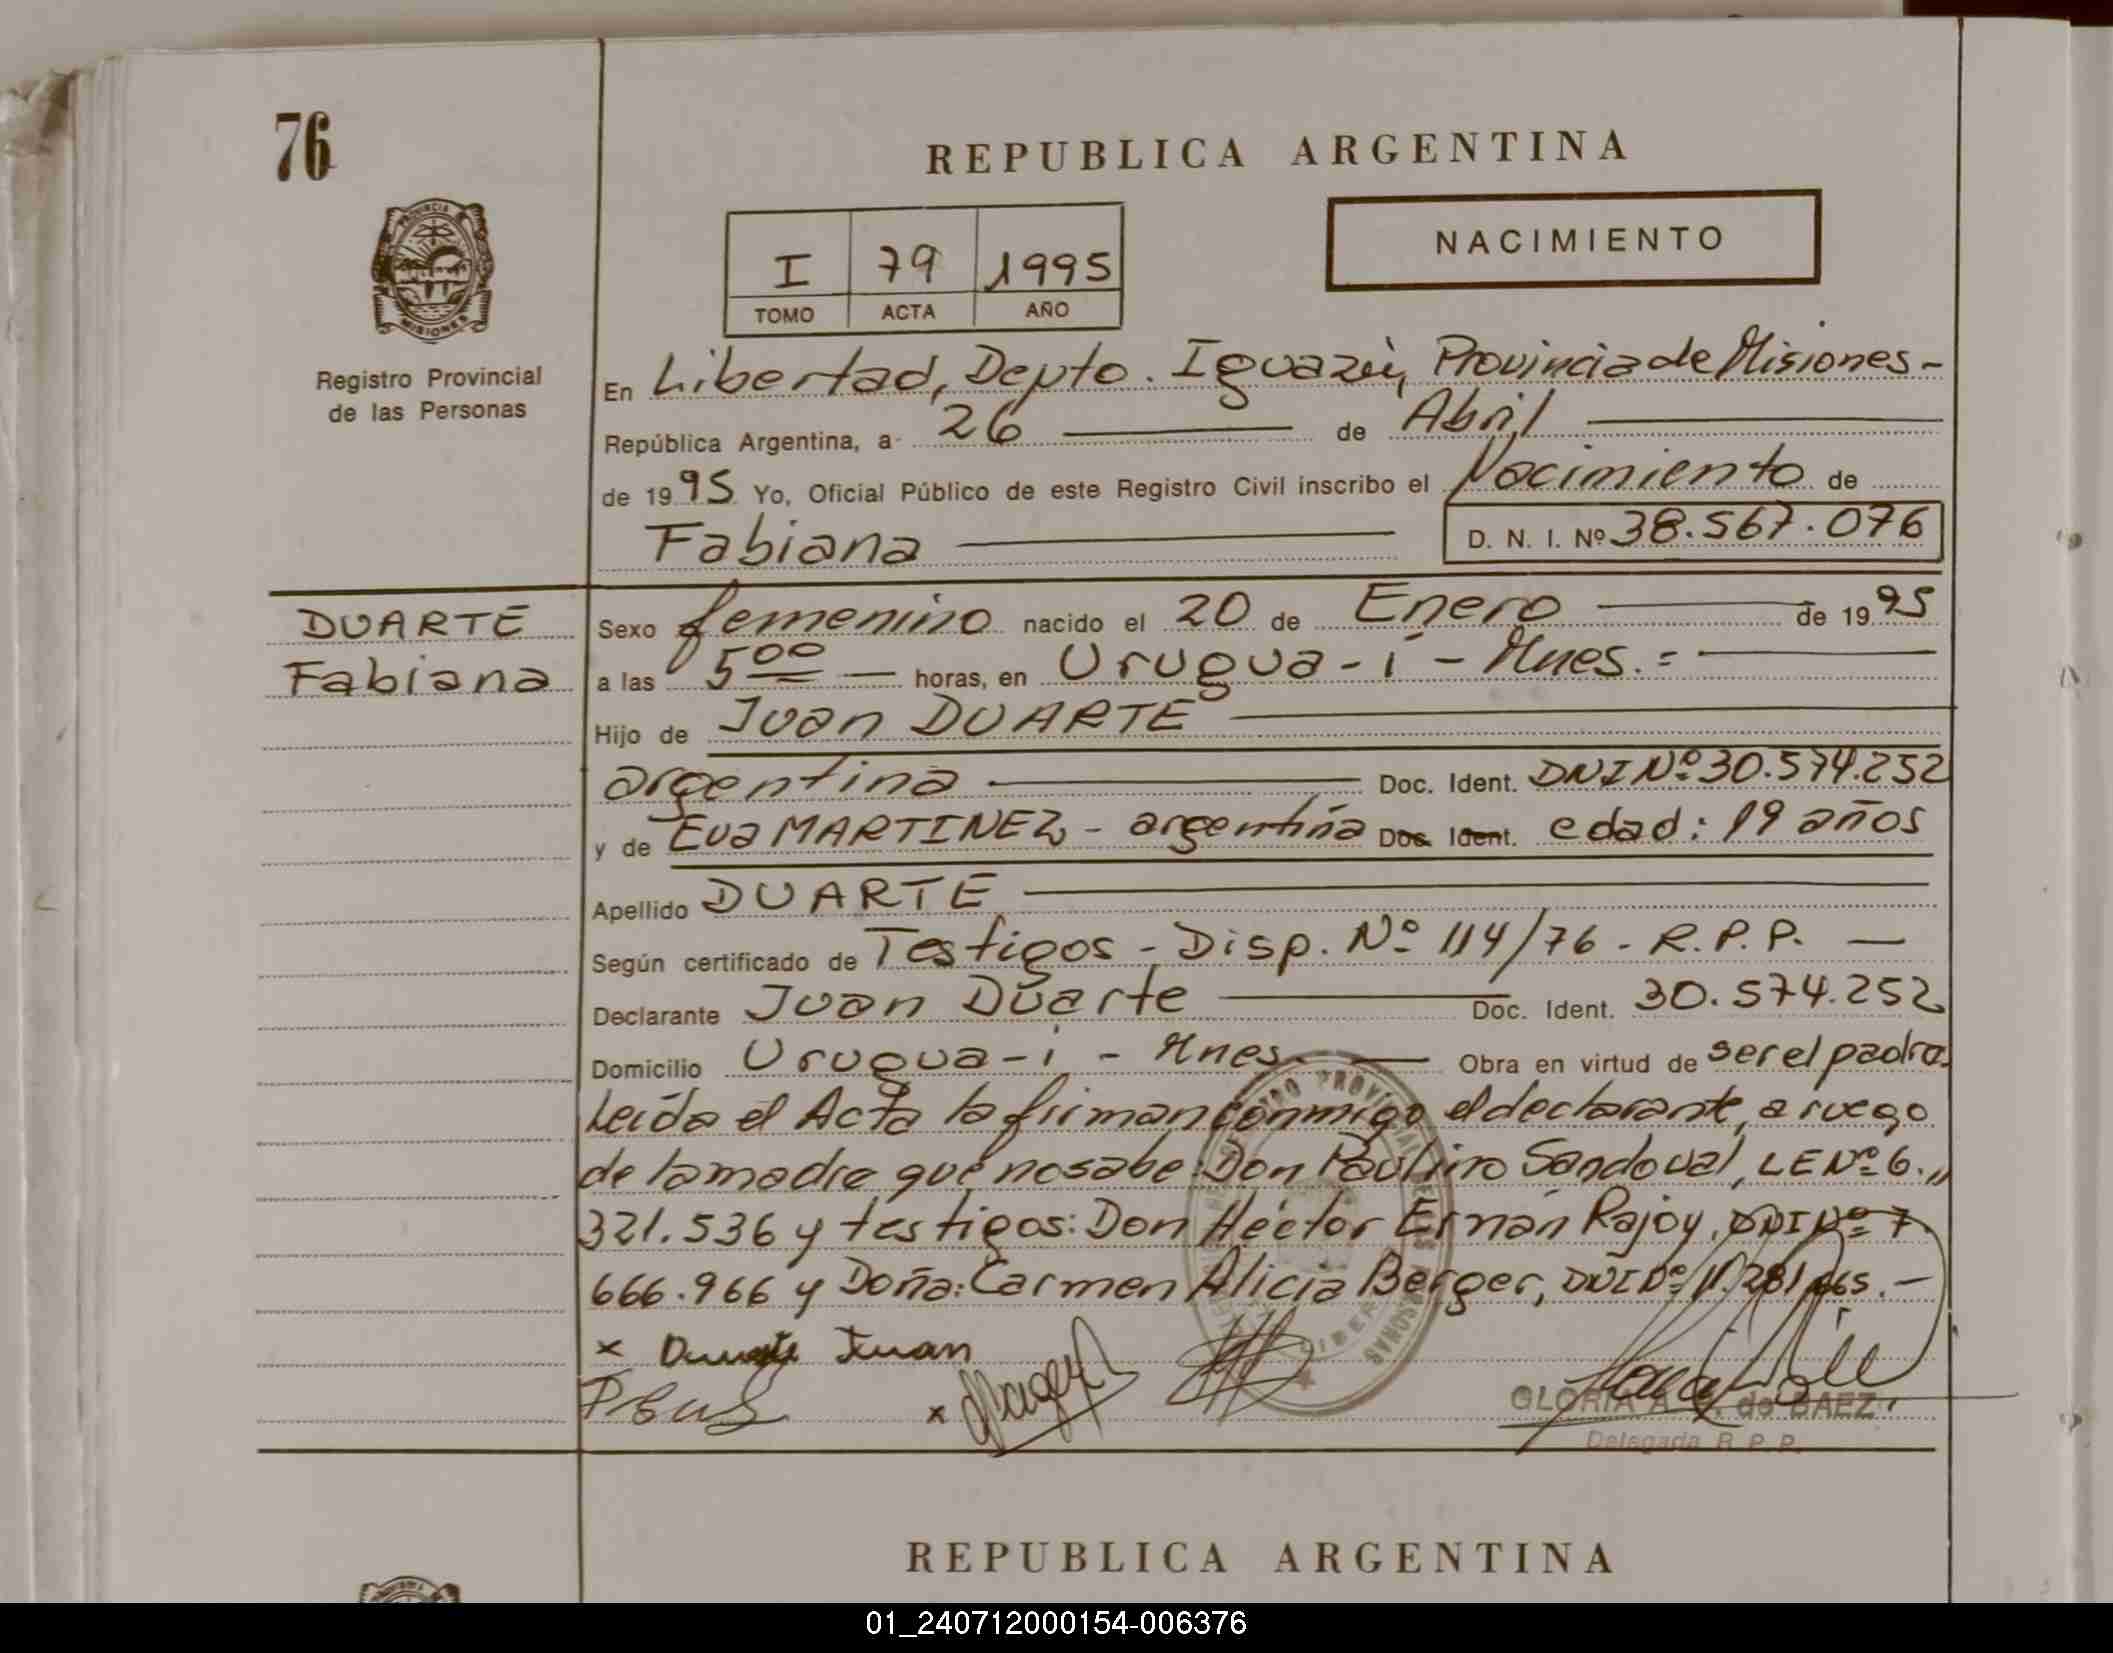 76
REPUBLICA ARGENTINA
PROVINCIA
MISIONES
Registro Provincial
de las Personas
I 79 1995
TOMO ACTA AÑO
NACIMIENTO
En Libertad, Depto. Iguazú, Provincia de Misiones-
República Argentina, a 26 de Abril
de 1995 Yo, Oficial Público de este Registro Civil inscribo el Nacimiento de
Fabiana D. N. I. Nº 38.567.076
DUARTE
Fabiana
Sexo femenino nacido el 20 de Enero de 1995
a las 5 00 horas, en Urugua-í - Mnes.=
Hijo de Juan DUARTE
argentina Doc. Ident. DNI Nº 30.574.252
y de Eva MARTINEZ - argentina Doc. Ident. edad: 19 años
Apellido DUARTE
Según certificado de Testigos - Disp. Nº 114/76 - R.P.P. —
Declarante Juan Duarte Doc. Ident. 30.574.252
Domicilio Urugua-i - Mnes. — Obra en virtud de ser el padre
Leída el Acta la firman conmigo el declarante, a ruego
de la madre que no sabe: Don Paulino Sandoval, LE Nº 6.,,
321.536 y testigos: Don Héctor Ernán Rajoy, DNI Nº 7
666.966 y Doña: Carmen Alicia Berger, DNI Nº 11.281.665.-
x Duarte Juan
x
GLORIA A. de BAEZ
Delegada R. P. P.
REPUBLICA ARGENTINA
01_240712000154-006376